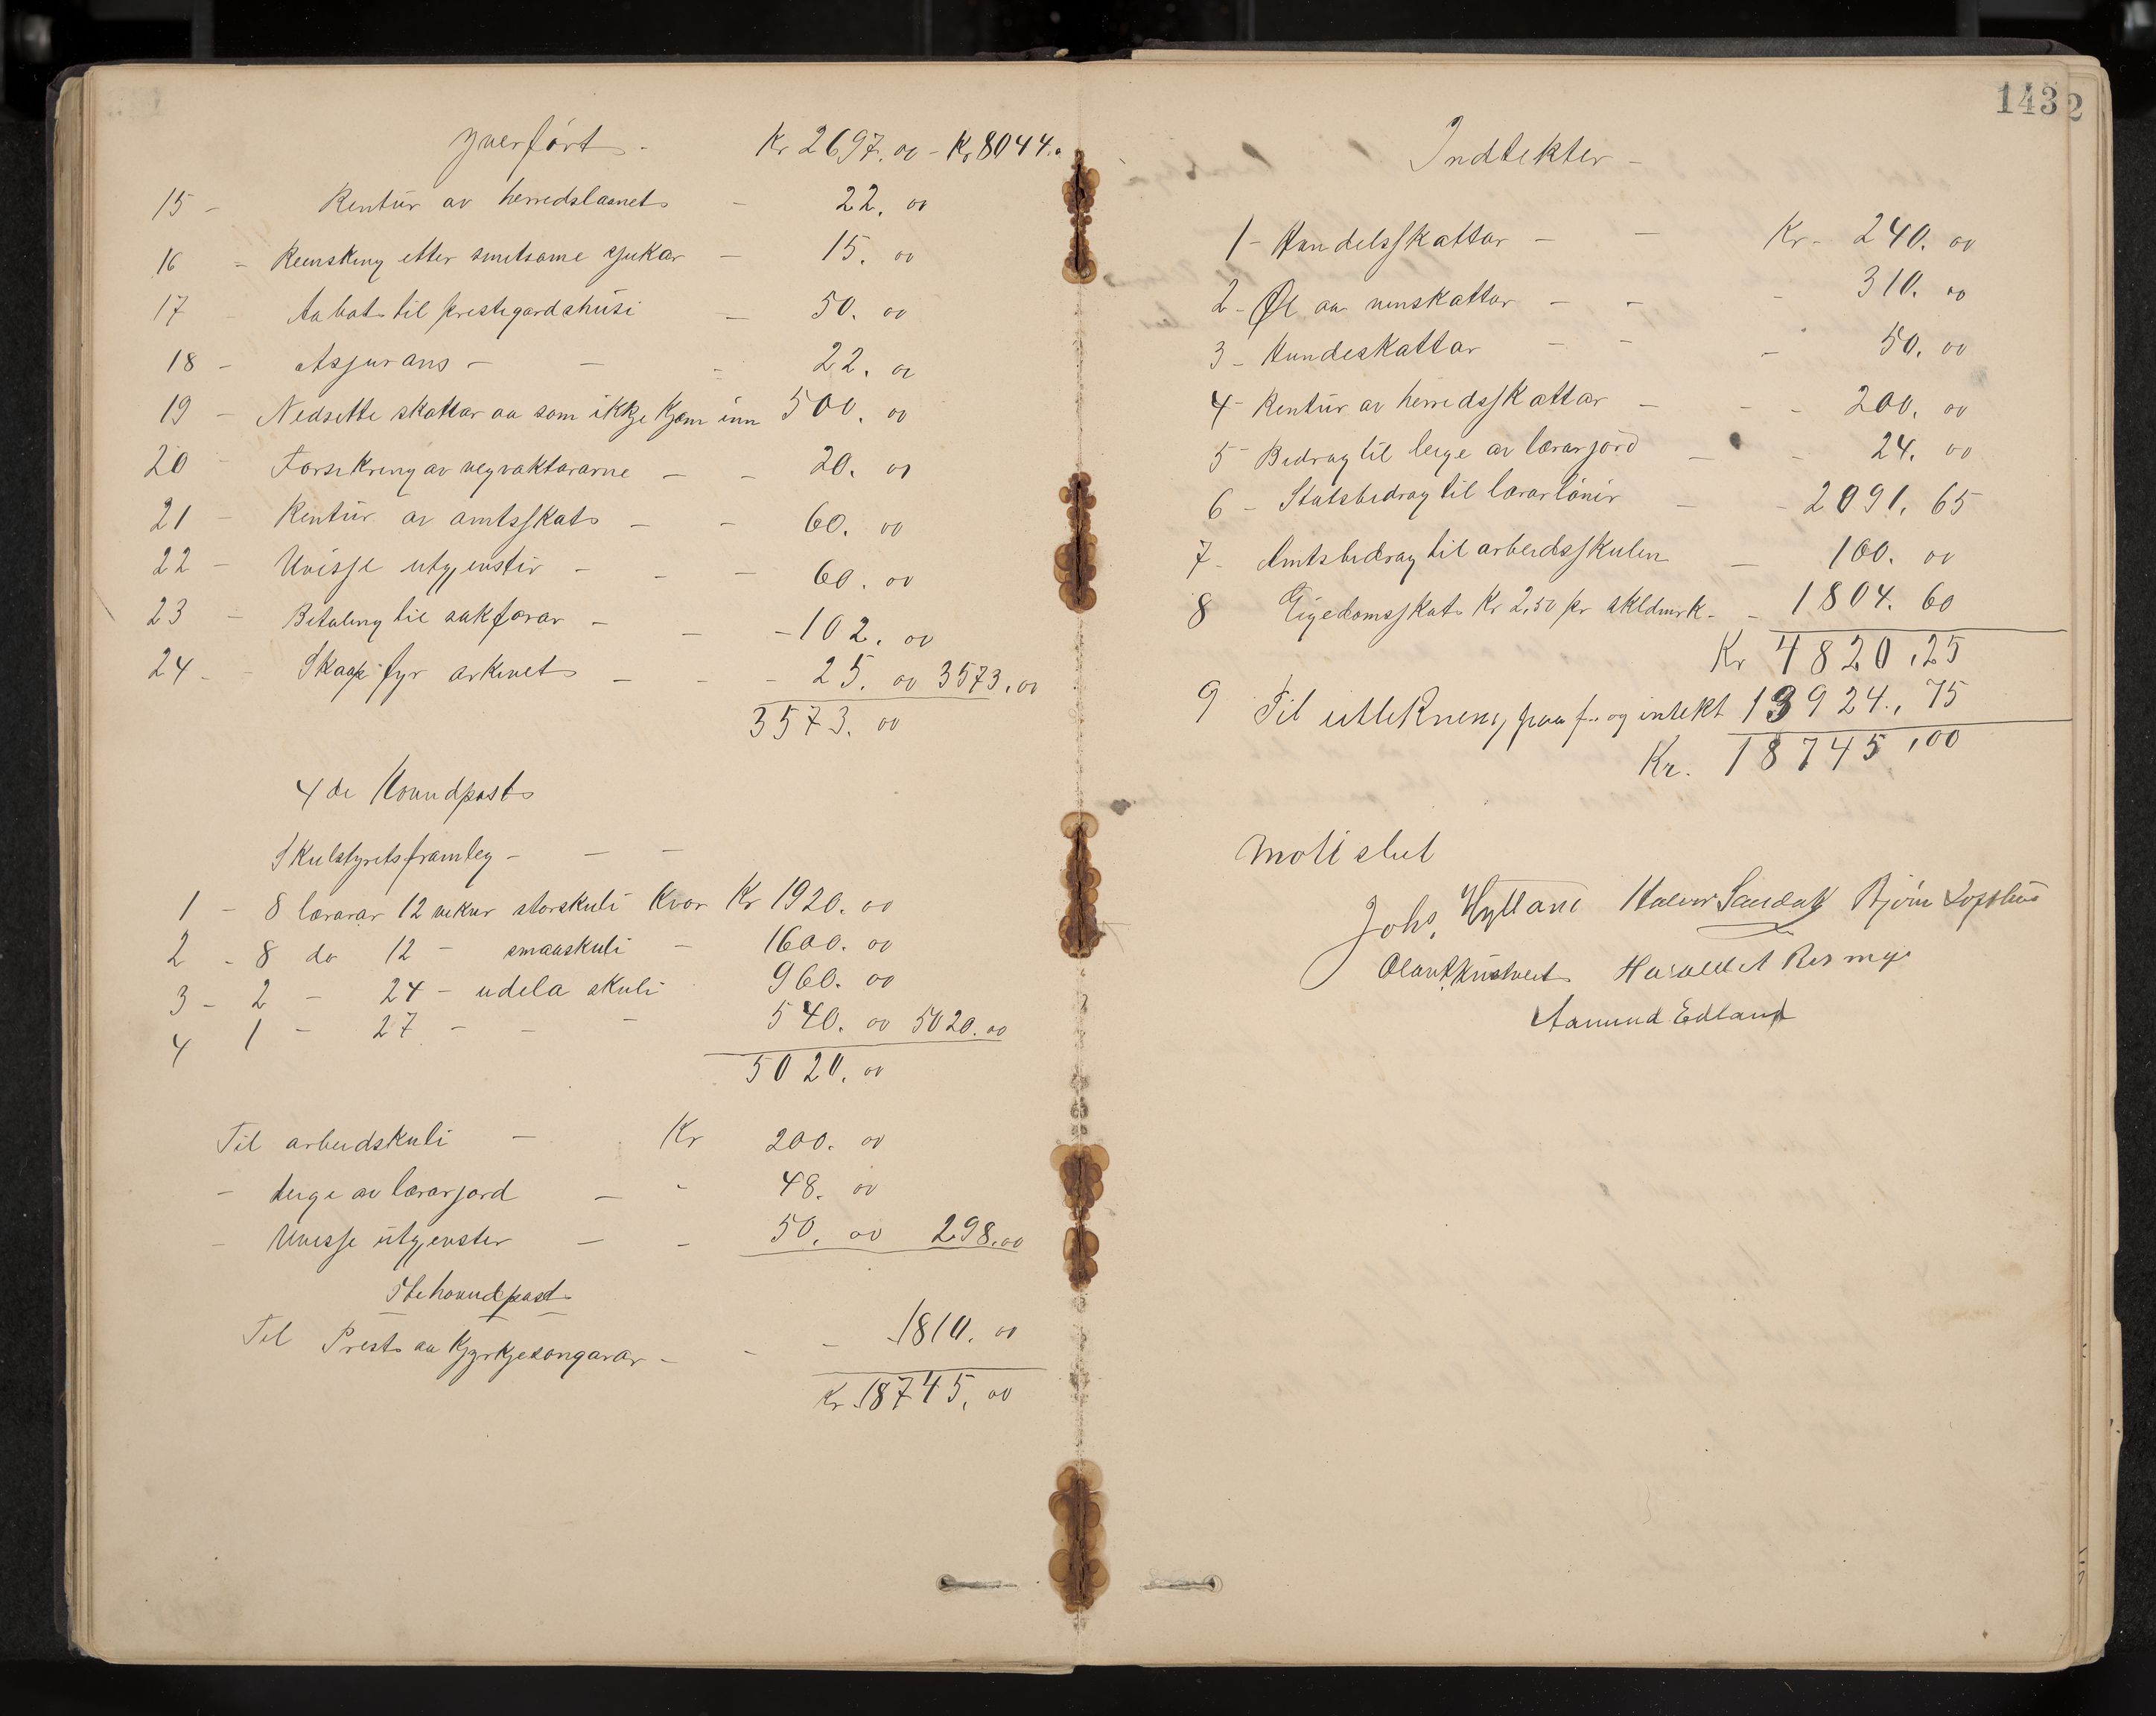 Yverført - Kr 2697.00 - Kr 8044.
15 - Rentur av herredslaanet - 22. 00
16 - Reinsking etter smitsame sjukar - 15. 00
17 - Aabot til prestegardshusi - 50. 00
18 - Assurans - - - 22. 00
19 - Nedsette skattar aa som ikkje kjem inn 500. 00
20 - Forsikring av vegvaktararne - - 20. 00
21 - Rentur av amtsskat - - 60. 00
22 - Uvisse utgjevster - - - 60. 00
23 - Betaling til sakførar - - - 102. 00
24 - Skaap fyr arkivet - - - 25. 00 3573.00
3573. 00
4de Hovudpost
Skulstyrets framleg - - -
1 - 8 lærarar 12 vekur storskuli kvar Kr 1920. 00
2 - 8 do 12 - smaaskuli - 1600. 00
3 - 2 - 24 - udela skuli 960. 00
4 1 - 27 - - - 540. 00 5020.00
5020. 00
Til arbeidskuli - Kr 200. 00
- Leige av lærarjord - - 48. 00
- Uvisse utgjevster - - 50. 00 298.00
5te hovudpost
Til Prest aa Kyrkjesongarar - - - 1810. 00
Kr 18745. 00
1432
Indtekter -
1 - Handelsskattar - - Kr - 240. 00
2 - Øl aa vinskattar - - - 310. 00
3 - Hundeskattar - - - 50. 00
4 - Rentur av herredsskattar - - - 200. 00
5 - Bidrag til leige av lærarjord - - 24. 00
6 - Statsbidrag til lærarlønir - - 2091. 65
7 - Amtsbidrag til arbeidsskulen - 100. 00
8 Eigedomsskat Kr 2,50 pr skldmrk. - 1804. 60
Kr 4820,25
9 Til utlikning paa f. og intekt 13924., 75
Kr. 18745,00
Møti slut
Johs. Hylland Halvor Sandok Bjørn Lofthus
Olav K. Kustveit Harald A Besmyr
Aamund Edland